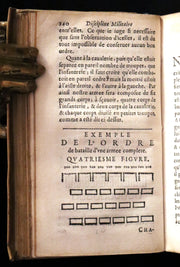 240 Discipline Militaire
entr'elles. Ce que je juge si necessaire
que sans l'observation d'icelles, il est
tout impossible de conserver aucun bon
ordre.
Quant à la cavalerie, puis qu'elle estoit
separée en pareil nombre de troupes, que
l'infanterie; il faut croire qu'elle
en pareil ordre
à l'aisle droite, & l'autre à la gauche.
ainsi nostre armée sera composée de six
grands corps; à sçavoir, quatre corps de
l'infanterie, & deux corps de la cavalerie,
& chaque corps divisé en petites troupes,
comme a esté dit ci dessus.
EXEMPLE
DE L'ORDRE
de bataille d'une armée complete.
QUATRIESME FIGURE.
CHA-